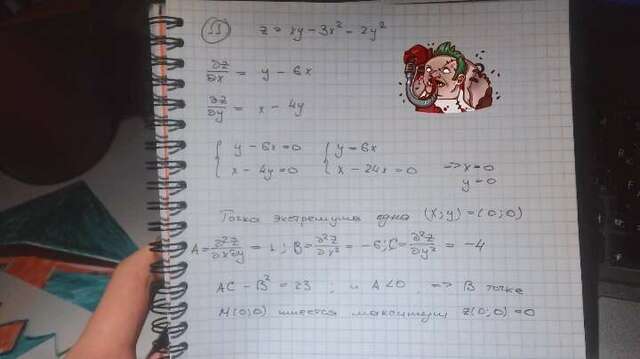 11 z = xy - 3x² - 2y²
∂z/∂x = y - 6x
∂z/∂y = x - 4y
{ y - 6x = 0 { y = 6x
{ x - 4y = 0 { x - 24x = 0 => x = 0
y = 0
Точка экстремума одна (x; y) = (0; 0)
A = ∂²z/∂x∂y = 1; B = ∂²z/∂x² = -6; C = ∂²z/∂y² = -4
AC - B² = 23 ; и A < 0 ; => В точке
M(0; 0) имеется максимум z(0; 0) = 0